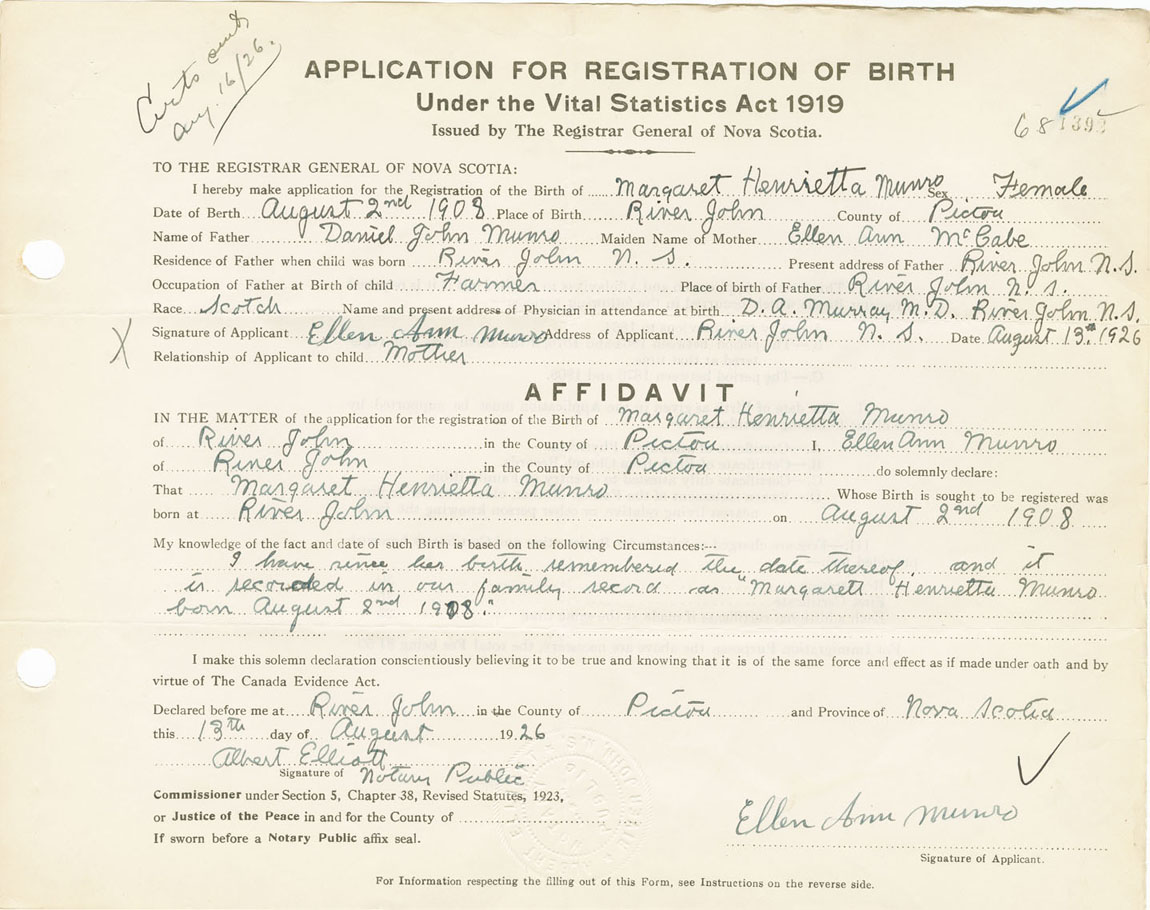 Certs
Aug. 16/26.
APPLICATION FOR REGISTRATION OF BIRTH
Under the Vital Statistics Act 1919
Issued by The Registrar General of Nova Scotia.
68 1392
TO THE REGISTRAR GENERAL OF NOVA SCOTIA:
I hereby make application for the Registration of the Birth of Margaret Henrietta Munro Sex Female
Date of Berth August 2nd 1908 Place of Birth River John County of Pictou
Name of Father Daniel John Munro Maiden Name of Mother Ellen Ann McCabe
Residence of Father when child was born River John N. S. Present address of Father River John N.S.
Occupation of Father at Birth of child Farmer Place of birth of Father River John N. S.
Race Scotch Name and present address of Physician in attendance at birth D. A. Murray M.D. River John N.S.
X Signature of Applicant Ellen Ann Munro Address of Applicant River John N. S. Date August 13th 1926
Relationship of Applicant to child Mother
AFFIDAVIT
IN THE MATTER of the application for the registration of the Birth of Margaret Henrietta Munro
of River John in the County of Pictou I, Ellen Ann Munro
of River John in the County of Pictou do solemnly declare:
That Margaret Henrietta Munro Whose Birth is sought to be registered was
born at River John on August 2nd 1908
My knowledge of the fact and date of such Birth is based on the following Circumstances:---
I have since her birth remembered the date thereof, and it
is recorded in our family record as "Margarett Henrietta Munro
born August 2nd 1908."
I make this solemn declaration conscientiously believing it to be true and knowing that it is of the same force and effect as if made under oath and by
virtue of The Canada Evidence Act.
Declared before me at River John in the County of Pictou and Province of Nova Scotia
this 13th day of August 1926
Albert Elliott
Signature of Notary Public
Commissioner under Section 5, Chapter 38, Revised Statutes, 1923,
or Justice of the Peace in and for the County of
If sworn before a Notary Public affix seal.
Ellen Ann Munro
Signature of Applicant.
For Information respecting the filling out of this Form, see Instructions on the reverse side.